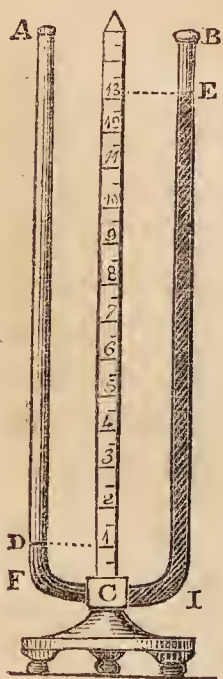 A B
13 E
12
11
10
9
8
7
6
5
4
3
2
D 1
F C I